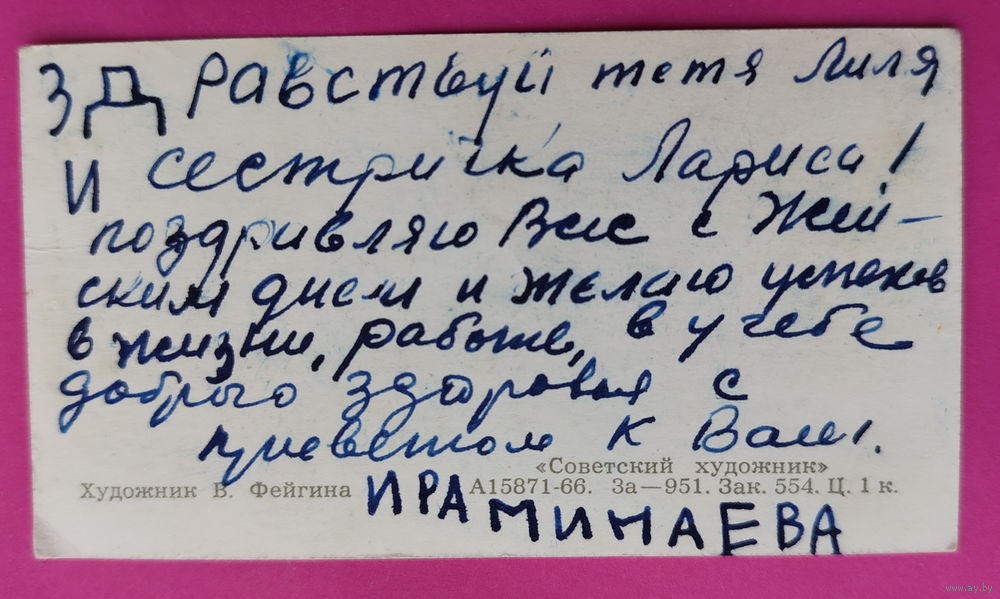 ЗДРАВСТВУЙ тетя Лиля
И сестричка Лариса!
поздравляю Вас с Жен-
ским днем и желаю успехов
в жизни, работе, в учебе
доброго здоровья с
приветом к Вам.
«Советский художник»
Художник В. Фейгина А15871-66. За—951. Зак. 554. Ц. 1 к.
ИРА МИНАЕВА
www.ay.by